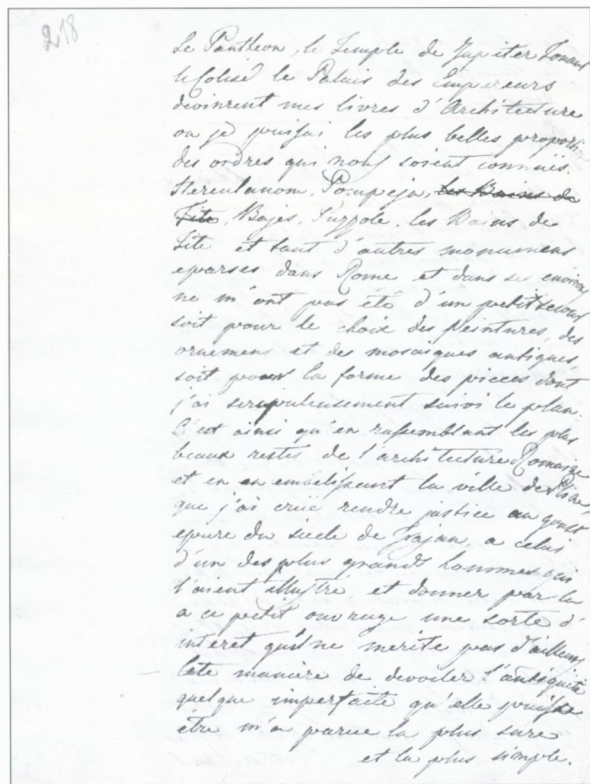 218
Le Pantheon, le Temple de Jupiter Tonans
le Colisé le Palais des Empereurs
devinrent mes livres d'Architecture
ou je puisai les plus belles proportio
des ordres qui nous soient connuës.
Herculanom, Pompeja, les Bains de
Tite, Bajes, Puzzole, les Bains de
Tite et tant d'autres monumens
eparses dans Rome et dans ses environ
ne m'ont pas été d'un petit secour
soit pour le choix des peintures, des
ornemens et des mosaiques antiques
soit pour la forme des pieces dont
j'ai scrupuleusement suivi le plan.
C'est ainsi qu'en rassemblant les plus
beaux restes de l'architecture Romaine
et en en embelissant la ville de Pline,
que j'ai cruë rendre justice au goust
epuré du siecle de Trajan, a celui
d'un des plus grands hommes qui
l'aient illustré et donner par la
a ce petit ouvrage une sorte d'
interet qu'il ne merite pas d'ailleurs
Cete maniere de devoiler l'antiquité
quelque imparfaite qu'elle puisse
être m'a paruë la plus sure
et la plus simple.